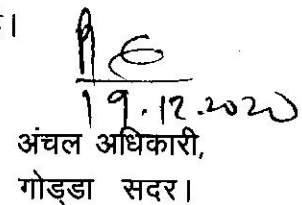 19.12.2020
अंचल अधिकारी,
गोड्डा सदर।